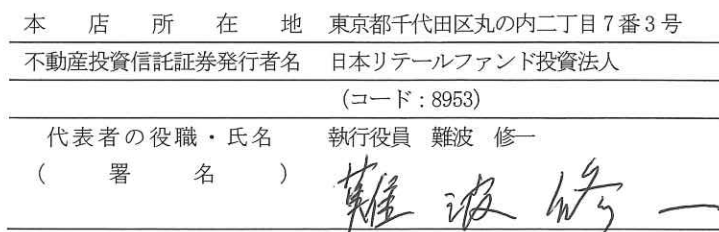 本店所在地 東京都千代田区丸の内二丁目7番3号
不動産投資信託証券発行者名 日本リテールファンド投資法人
(コード:8953)
代表者の役職・氏名 執行役員 難波 修一
(署名) 難波修一